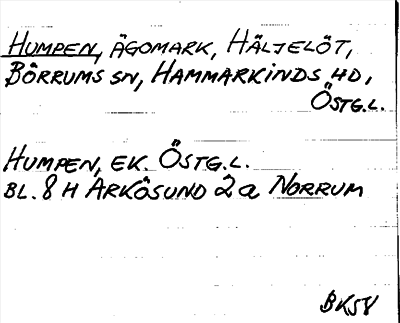 HUMPEN, ÄGOMARK, HÄLJELÖT,
BÖRRUMS SN, HAMMARKINDS HD,
ÖSTG.L.
HUMPEN, EK. ÖSTG.L.
BL. 8 H ARKÖSUND 2a NORRUM
BK58